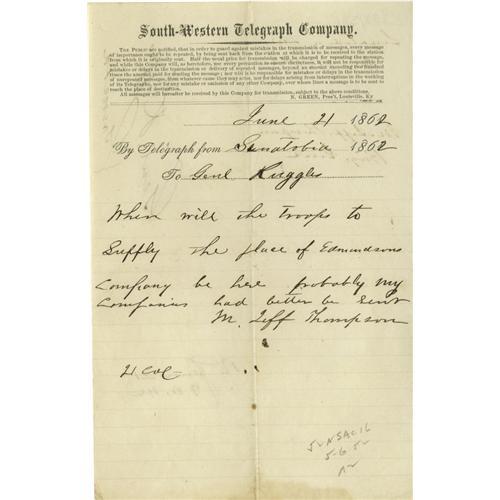 South-Western Telegraph Company.
THE PUBLIC are notified, that in order to guard against mistakes in the transmission of messages, every message
of importance ought to be repeated, by being sent back from the station at which it is to be received to the station
from which it is originally sent. Half the usual price for transmission will be charged for repeating the message,
and while this Company will, as heretofore, use every precaution to ensure correctness, it will not be responsible for
mistakes or delays in the transmission or delivery of repeated messages, beyond an amount exceeding five hundred
times the amount paid for sending the message; nor will it be responsible for mistakes or delays in the transmission
of unrepeated messages, from whatever cause they may arise, nor for delays arising from interruptions in the working
of its Telegraphs, nor for any mistake or omission of any other Company, over whose lines a message is to be sent to
reach the place of destination.
All messages will hereafter be received by this Company for transmission, subject to the above conditions.
N. GREEN, Pres't, Louisville, Ky
June 21 1862
By Telegraph from Senatobia 1862
To Genl Ruggles
When will the troops to
Supply the place of Edmondsons
Company be here probably my
Companies had better be sent
M. Jeff Thompson
21 Col
5-6